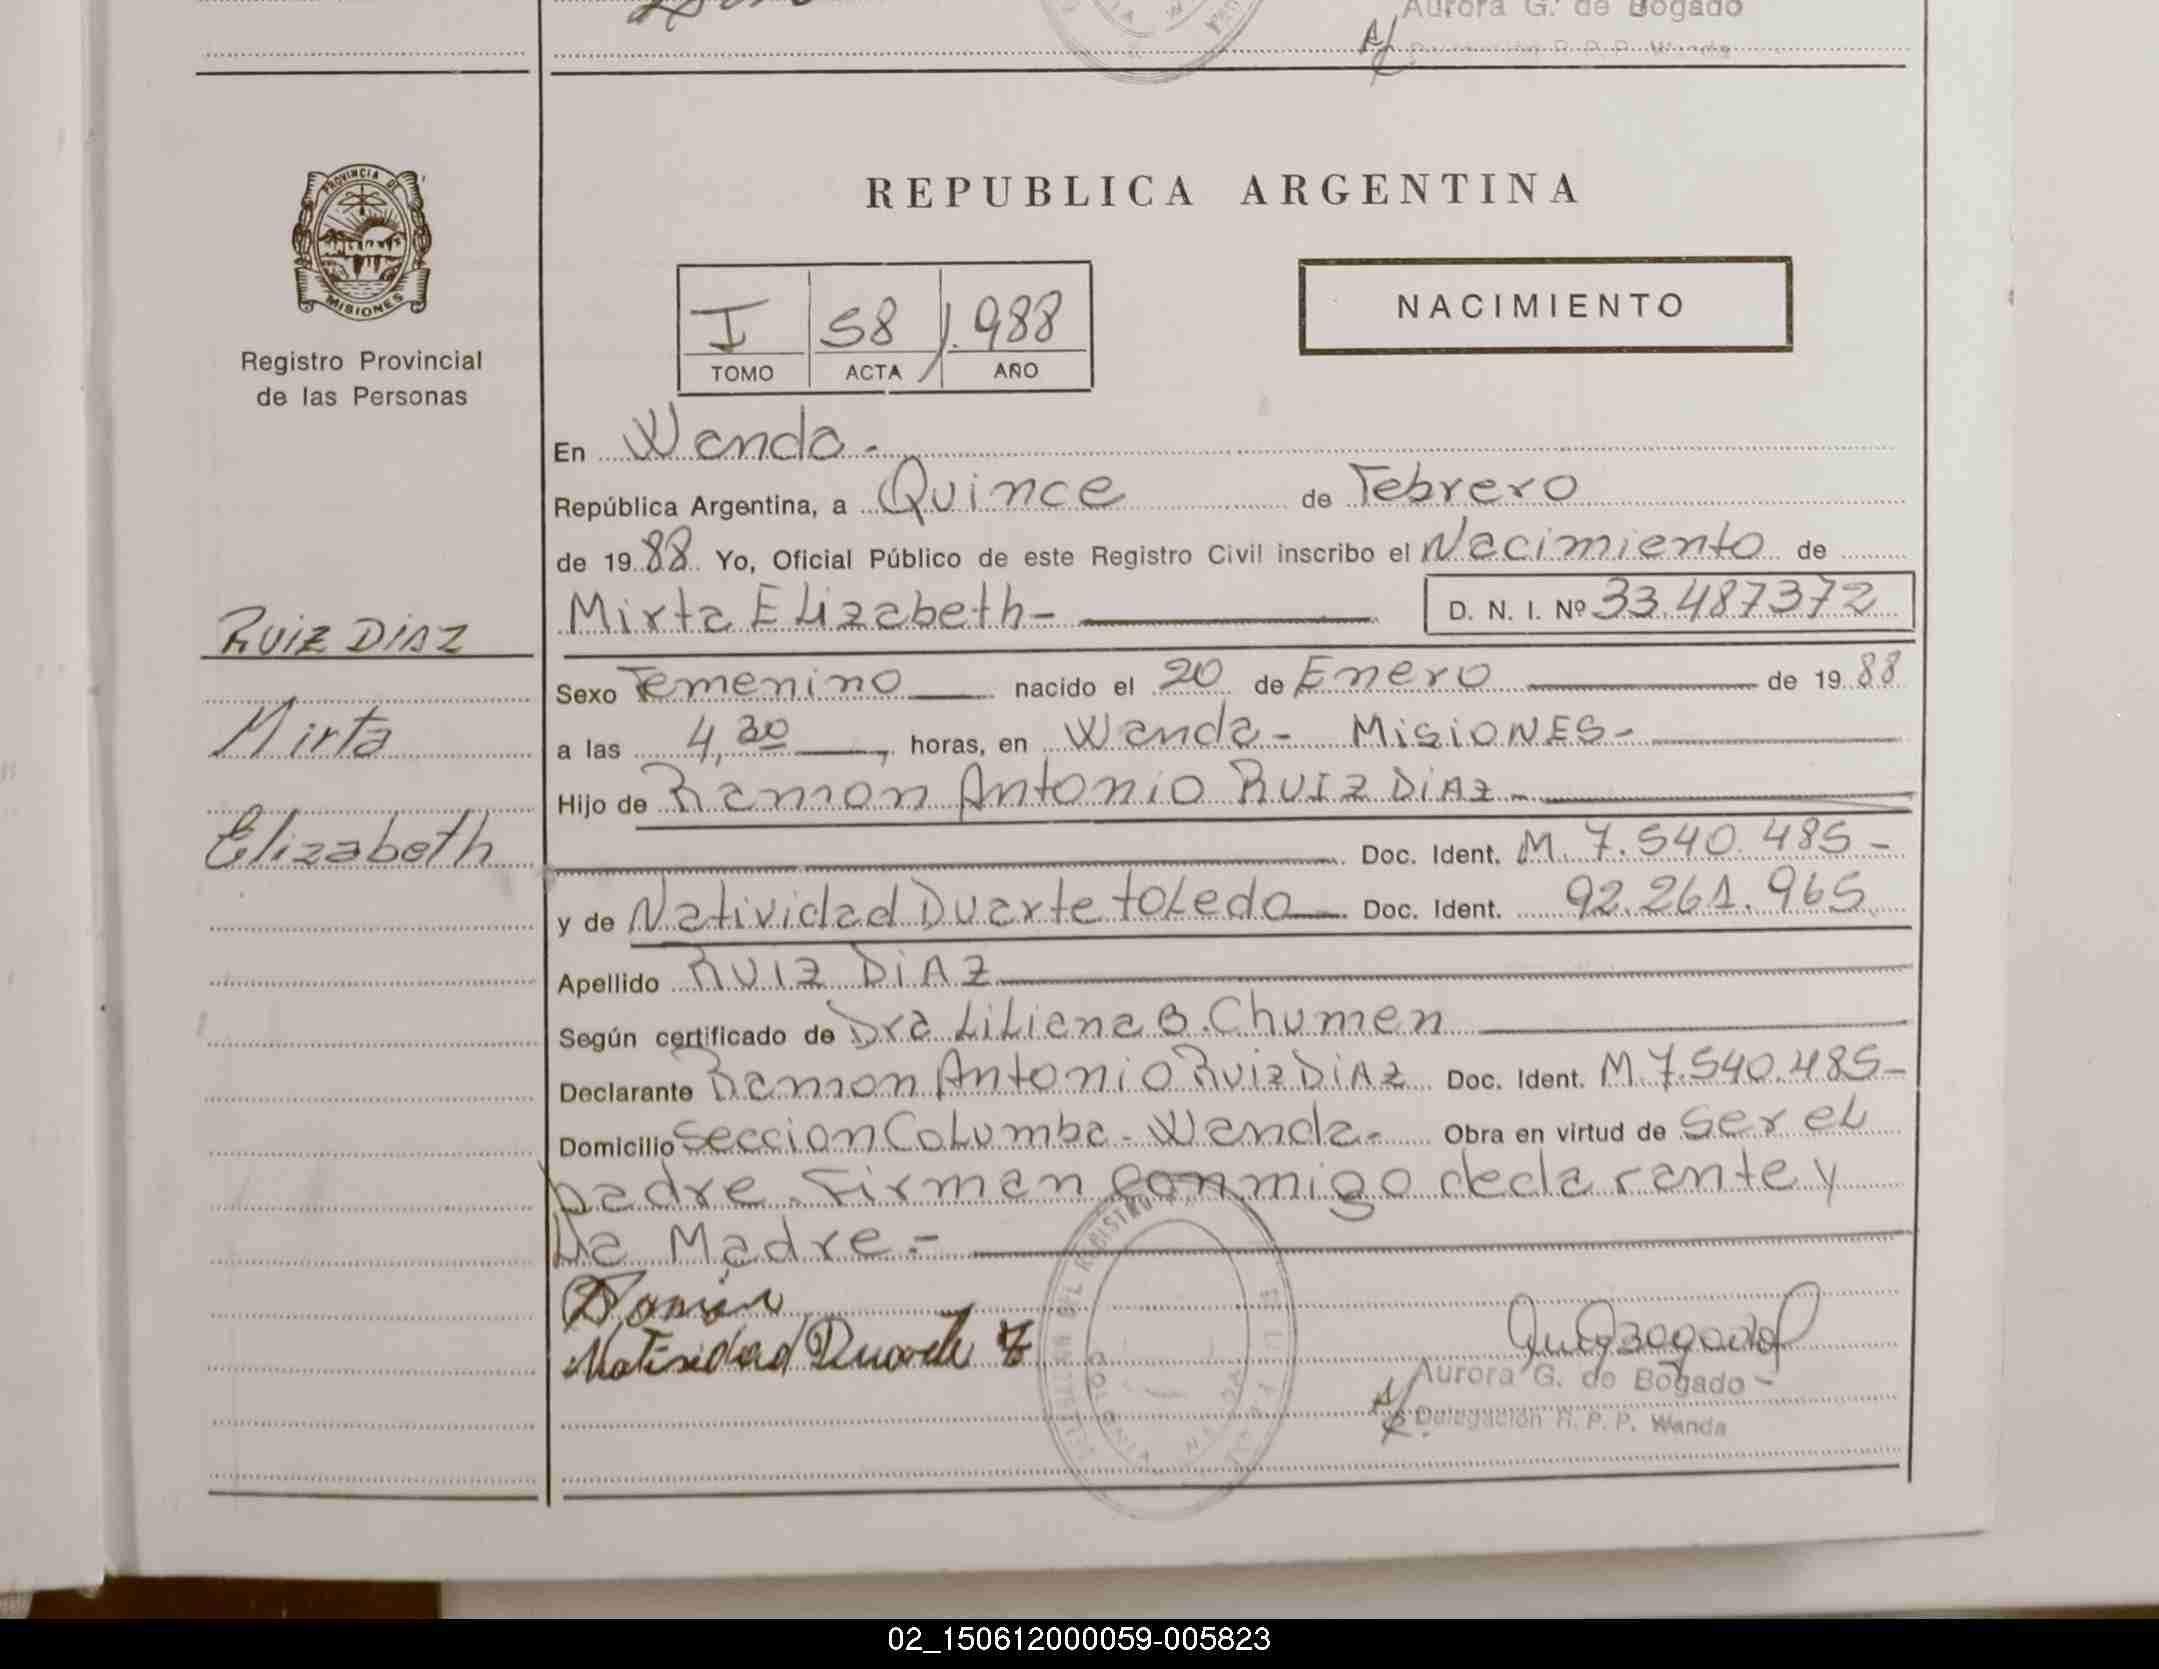 Aurora G. de Bogado
Delegación R. P. P. Wanda
PROVINCIA DE
MISIONES
Registro Provincial
de las Personas
REPUBLICA ARGENTINA
I 58 1.988
TOMO ACTA AÑO
NACIMIENTO
En Wanda -
República Argentina, a Quince de Febrero
de 1988 Yo, Oficial Público de este Registro Civil inscribo el Nacimiento de
Mirta Elizabeth - D. N. I. Nº 33.487372
RUIZ DIAZ
Mirta
Elizabeth
Sexo Femenino nacido el 20 de Enero de 1988
a las 4,30 horas, en Wanda - MISIONES -
Hijo de Ramon Antonio RUIZ DIAZ -
Doc. Ident. M. 7.540.485 -
y de Natividad Duarte toledo Doc. Ident. 92.261.965
Apellido RUIZ DIAZ
Según certificado de Dra Liliana B. Chumen
Declarante Ramon Antonio Ruiz DIAZ Doc. Ident. M. 7.540.485 -
Domicilio Seccion Columba - Wanda - Obra en virtud de ser el
padre. Firman conmigo declarante y
La Madre. -
Ramón
Natividad Duarte T
Aurora G. de Bogado
Delegación R. P. P. Wanda
02_150612000059-005823